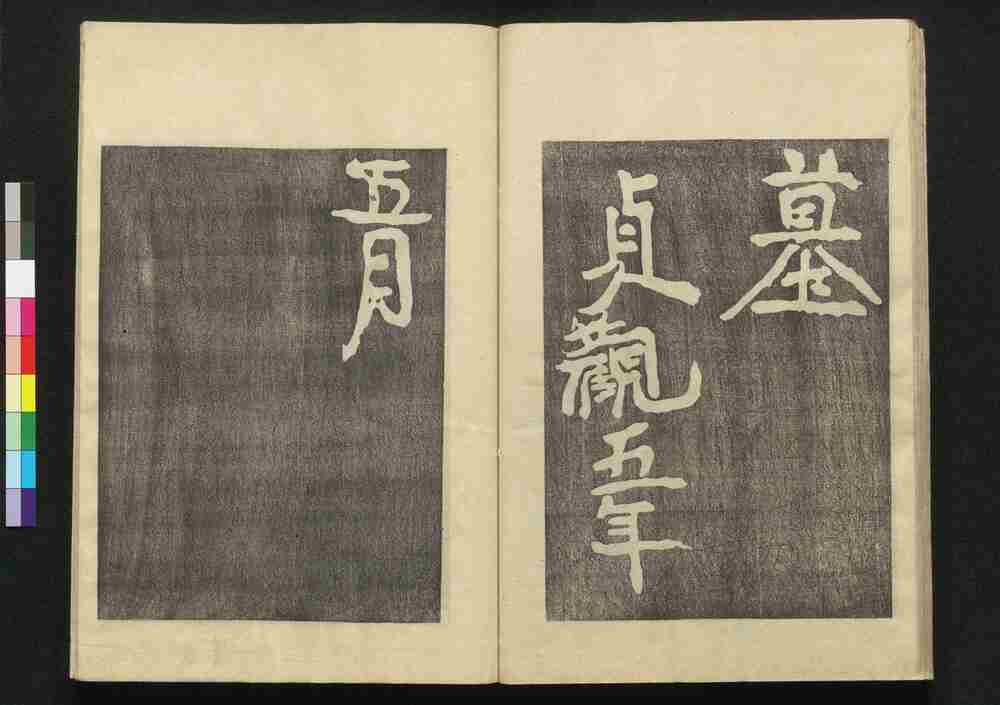 墓
貞觀五年
五月